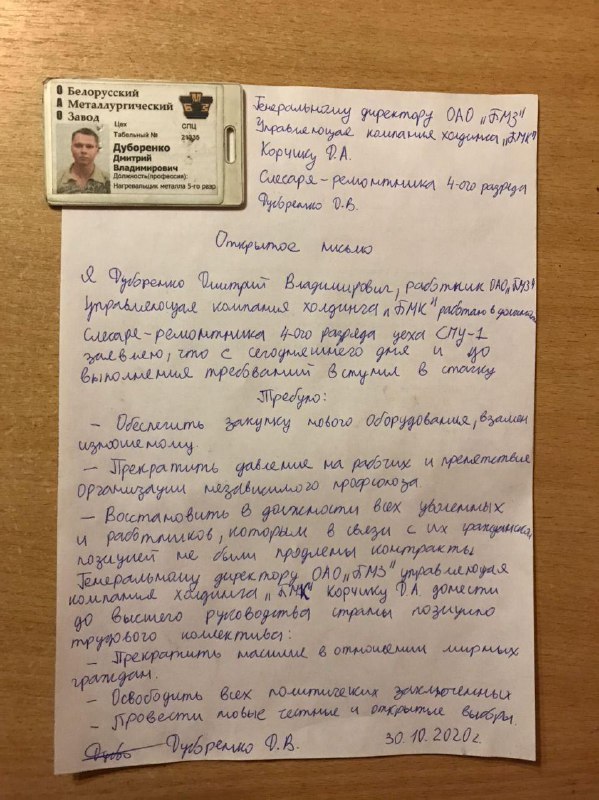 ОАО
Белорусский
Металлургический
Завод
Цех СПЦ
Табельный № 21335
Дуборенко
Дмитрий
Владимирович
Должность(профессия):
Нагревальщик металла 5-го разр
Генеральному директору ОАО „БМЗ"
Управляющая компания холдинга „БМК"
Корчику Д.А.
Слесаря-ремонтника 4-ого разряда
Дуборенко Д.В.
Открытое письмо
Я Дуборенко Дмитрий Владимирович, работник ОАО„БМЗ"
Управляющая компания холдинга „БМК" работаю в должности
Слесаря-ремонтника 4-ого разряда цеха СПЦ-1
заявляю, что с сегодняшнего дня и до
выполнения требований вступил в стачку
Требую:
– Обеспечить закупку нового оборудования, взамен
изношеному.
– Прекратить давление на рабочих и препятствие
организации независимого профсоюза.
– Восстановить в должности всех уволенных
и работников, которым в связи с их гражданской
позицией не были продлены контракты
Генеральному директору ОАО „БМЗ" управляющая
компания холдинга „БМК" Корчику Д.А. донести
до высшего руководства страны позицию
трудового коллектива:
– Прекратить насилие в отношении мирных
граждан.
– Освободить всех политических заключенных
– Провести новые честные и открытые выборы.
Дуборенко Д.В. 30.10.2020г.